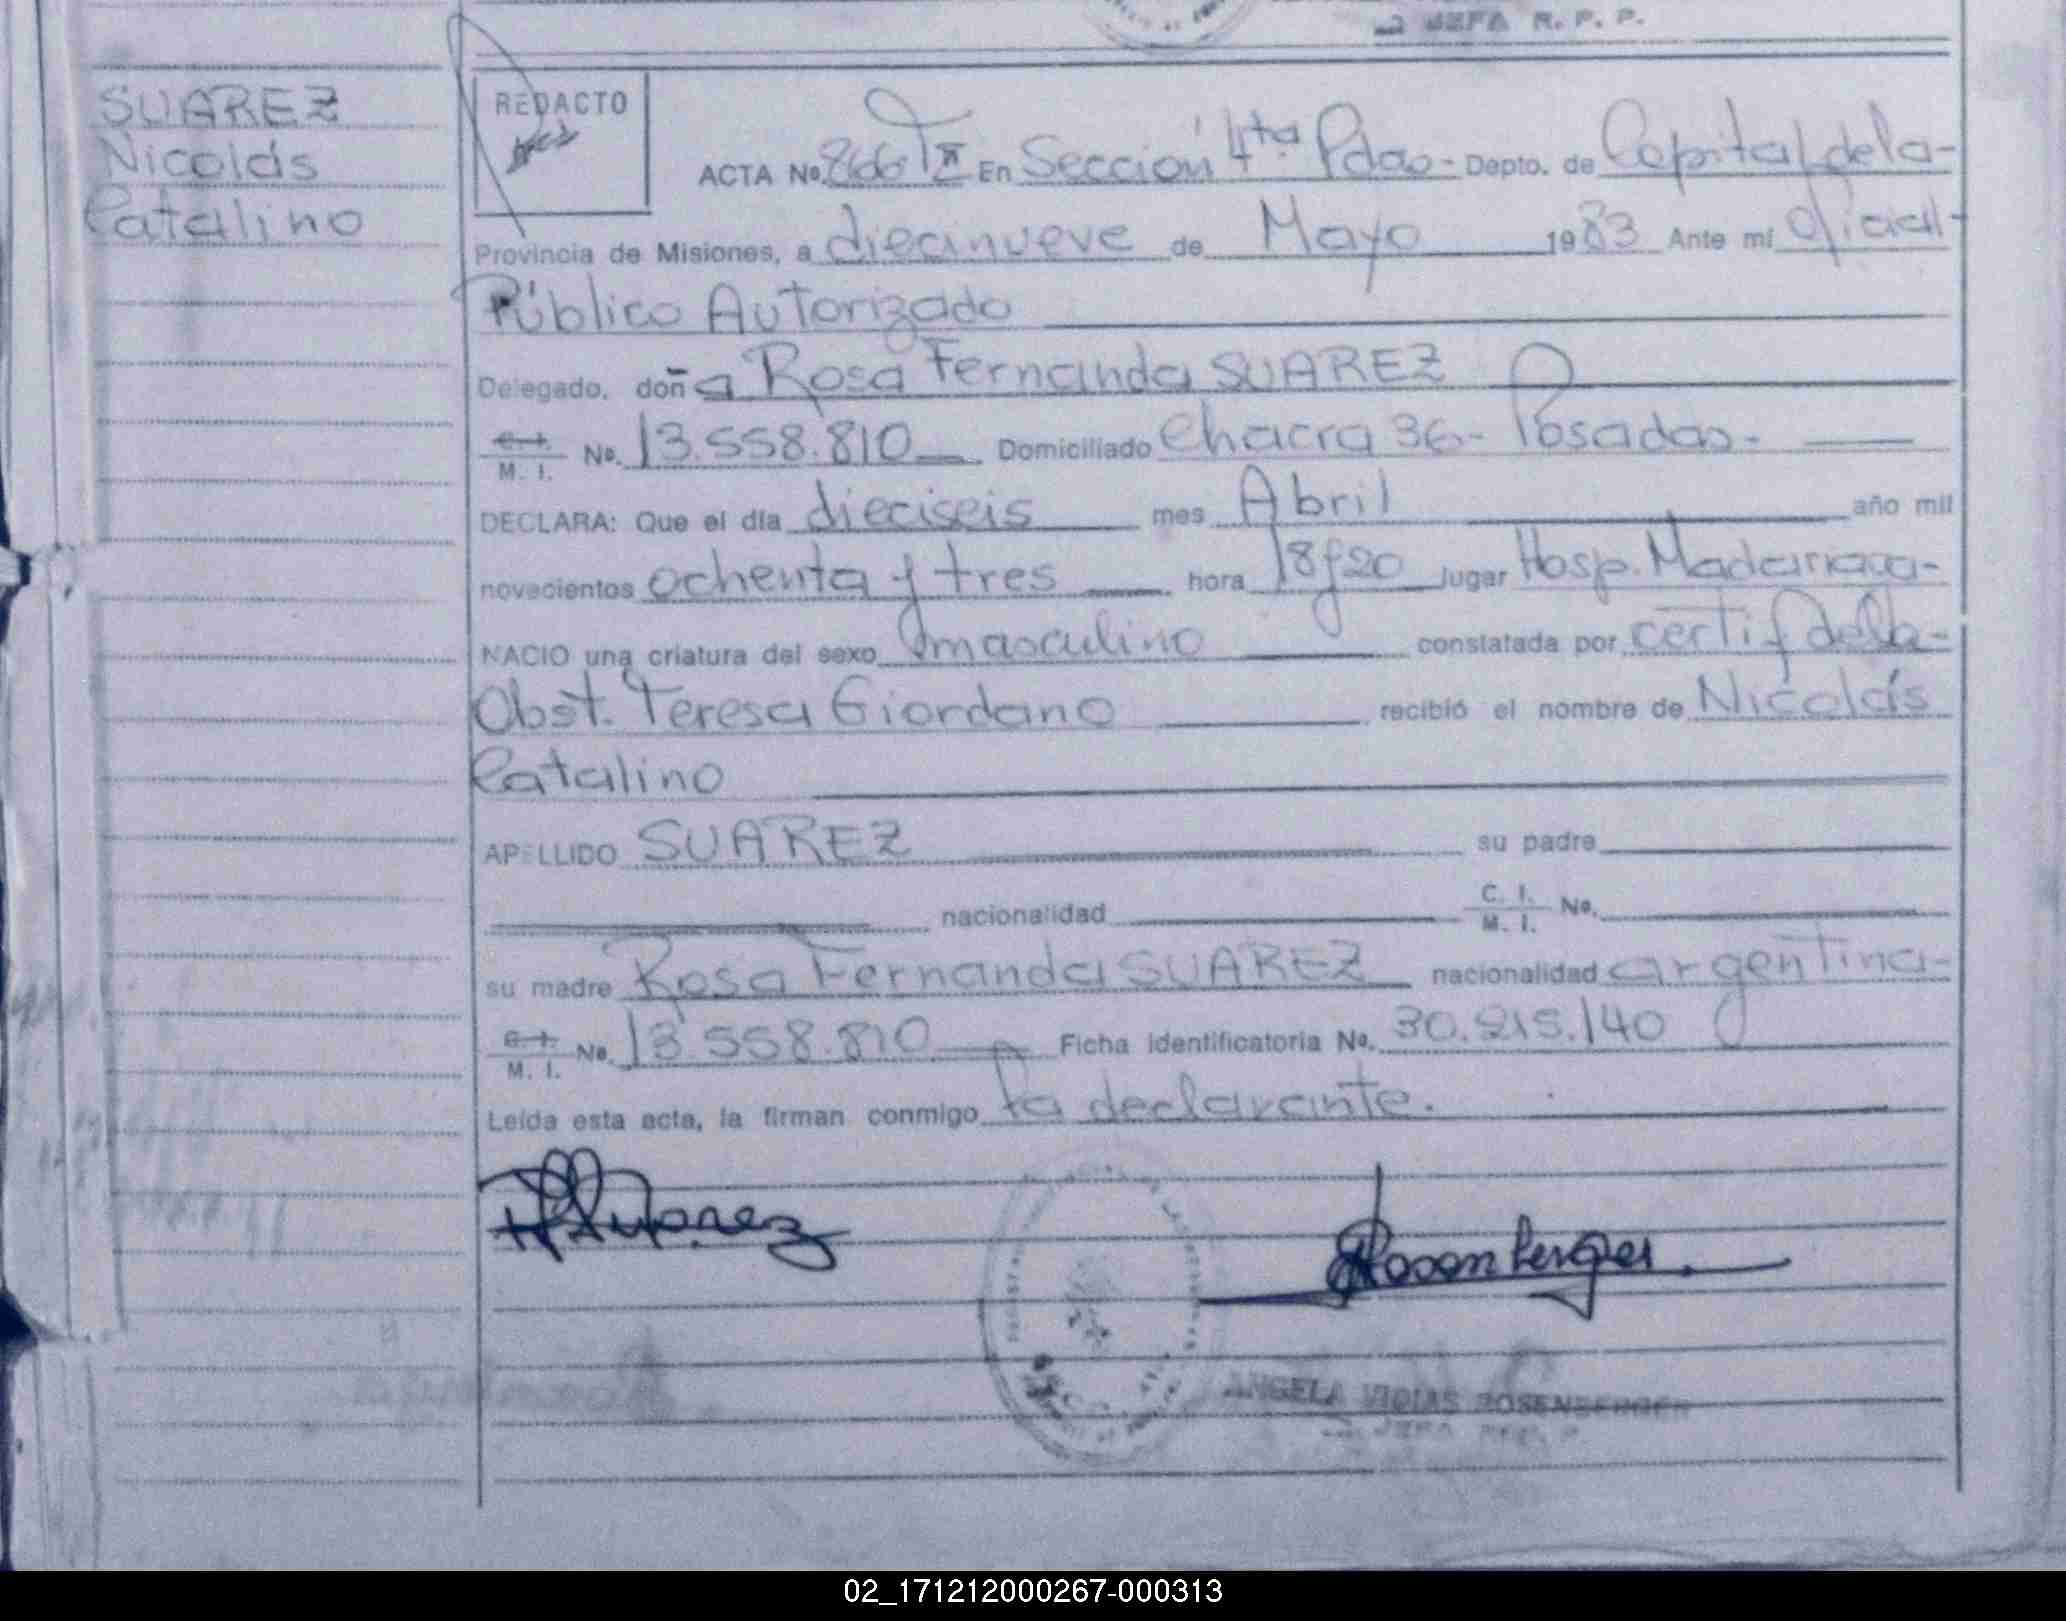 JEFA R. P. P.
SUAREZ
Nicolás
Catalino
REDACTO
ACTA Nº 866 T II En Sección 4ta Pdas- Depto. de Capital de la-
Provincia de Misiones, a diecinueve de Mayo 1983 Ante mí Oficial-
Público Autorizado
Delegado, doña Rosa Fernanda SUAREZ
C. I. / M. I. Nº. 13.558.810 Domiciliado Chacra 36- Posadas-
DECLARA: Que el día dieciseis mes Abril año mil
novecientos ochenta y tres hora 18 y 20 lugar Hosp. Madariaga-
NACIO una criatura del sexo masculino constatada por certif de la-
Obst. Teresa Giordano recibió el nombre de Nicolás
Catalino
APELLIDO SUAREZ su padre
nacionalidad C. I. / M. I. Nº.
su madre Rosa Fernanda SUAREZ nacionalidad argentina-
C. I. / M. I. Nº. 13.558.810 Ficha identificatoria Nº. 30.215.140
Leída esta acta, la firman conmigo la declarante.
RFSuarez
Rosenberger
ANGELA ROSENBERGER
JEFA R. P. P.
02_171212000267-000313